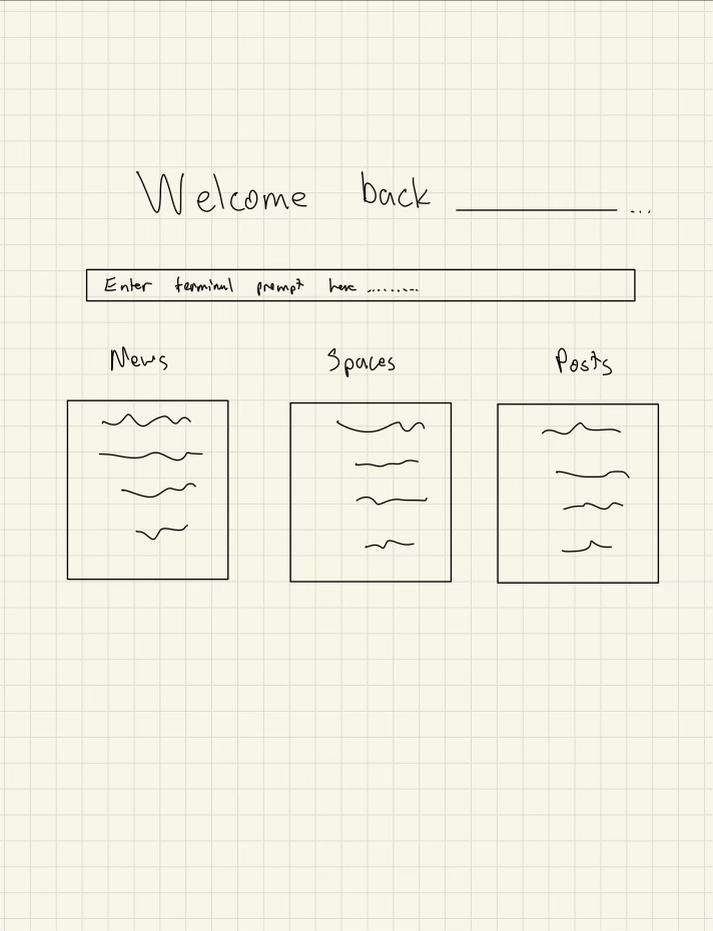 Welcome back ________ ...
Enter terminal prompt here .........
News Spaces Posts